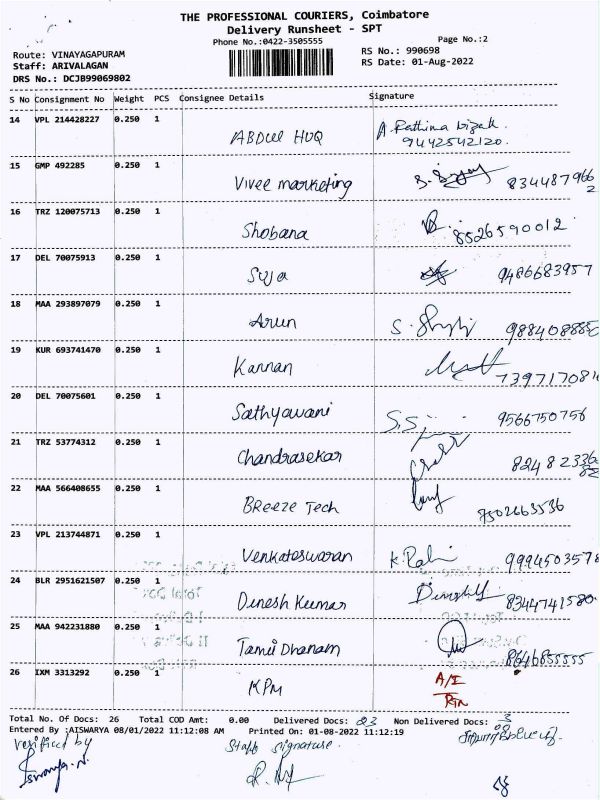 THE PROFESSIONAL COURIERS, Coimbatore
Delivery Runsheet - SPT
Phone No.:0422-3505555
Page No.:2
Route: VINAYAGAPURAM
Staff: ARIVALAGAN
DRS No.: DCJB99069802
RS No.: 990698
RS Date: 01-Aug-2022
S No Consignment No Weight PCS Consignee Details Signature
14 VPL 214428227 0.250 1
ABDUL HUQ
9442542120.
15 GMP 492285 0.250 1
Vivee marketing 8344879662
16 TRZ 120075713 0.250 1
Shobana 8526590012
17 DEL 70075913 0.250 1
Suja 9486683957
18 MAA 293897079 0.250 1
Arun
19 KUR 693741470 0.250 1
Kannan
20 DEL 70075601 0.250 1
Sathyavani 9566750756
21 TRZ 53774312 0.250 1
Chandrasekar
22 MAA 566408655 0.250 1
BReeze Tech 7502663536
23 VPL 213744871 0.250 1
Venkateswaran
24 BLR 2951621507 0.250 1
Dinesh Kumar 8344741580
25 MAA 942231880 0.250 1
Tamil Dhanam 8646855555
26 IXM 3313292 0.250 1
KPM
A/I
RTN
Total No. Of Docs: 26 Total COD Amt: 0.00 Delivered Docs: 23 Non Delivered Docs: 3
Entered By :AISWARYA 08/01/2022 11:12:08 AM Printed On: 01-08-2022 11:12:19
verified by
Staff signature.